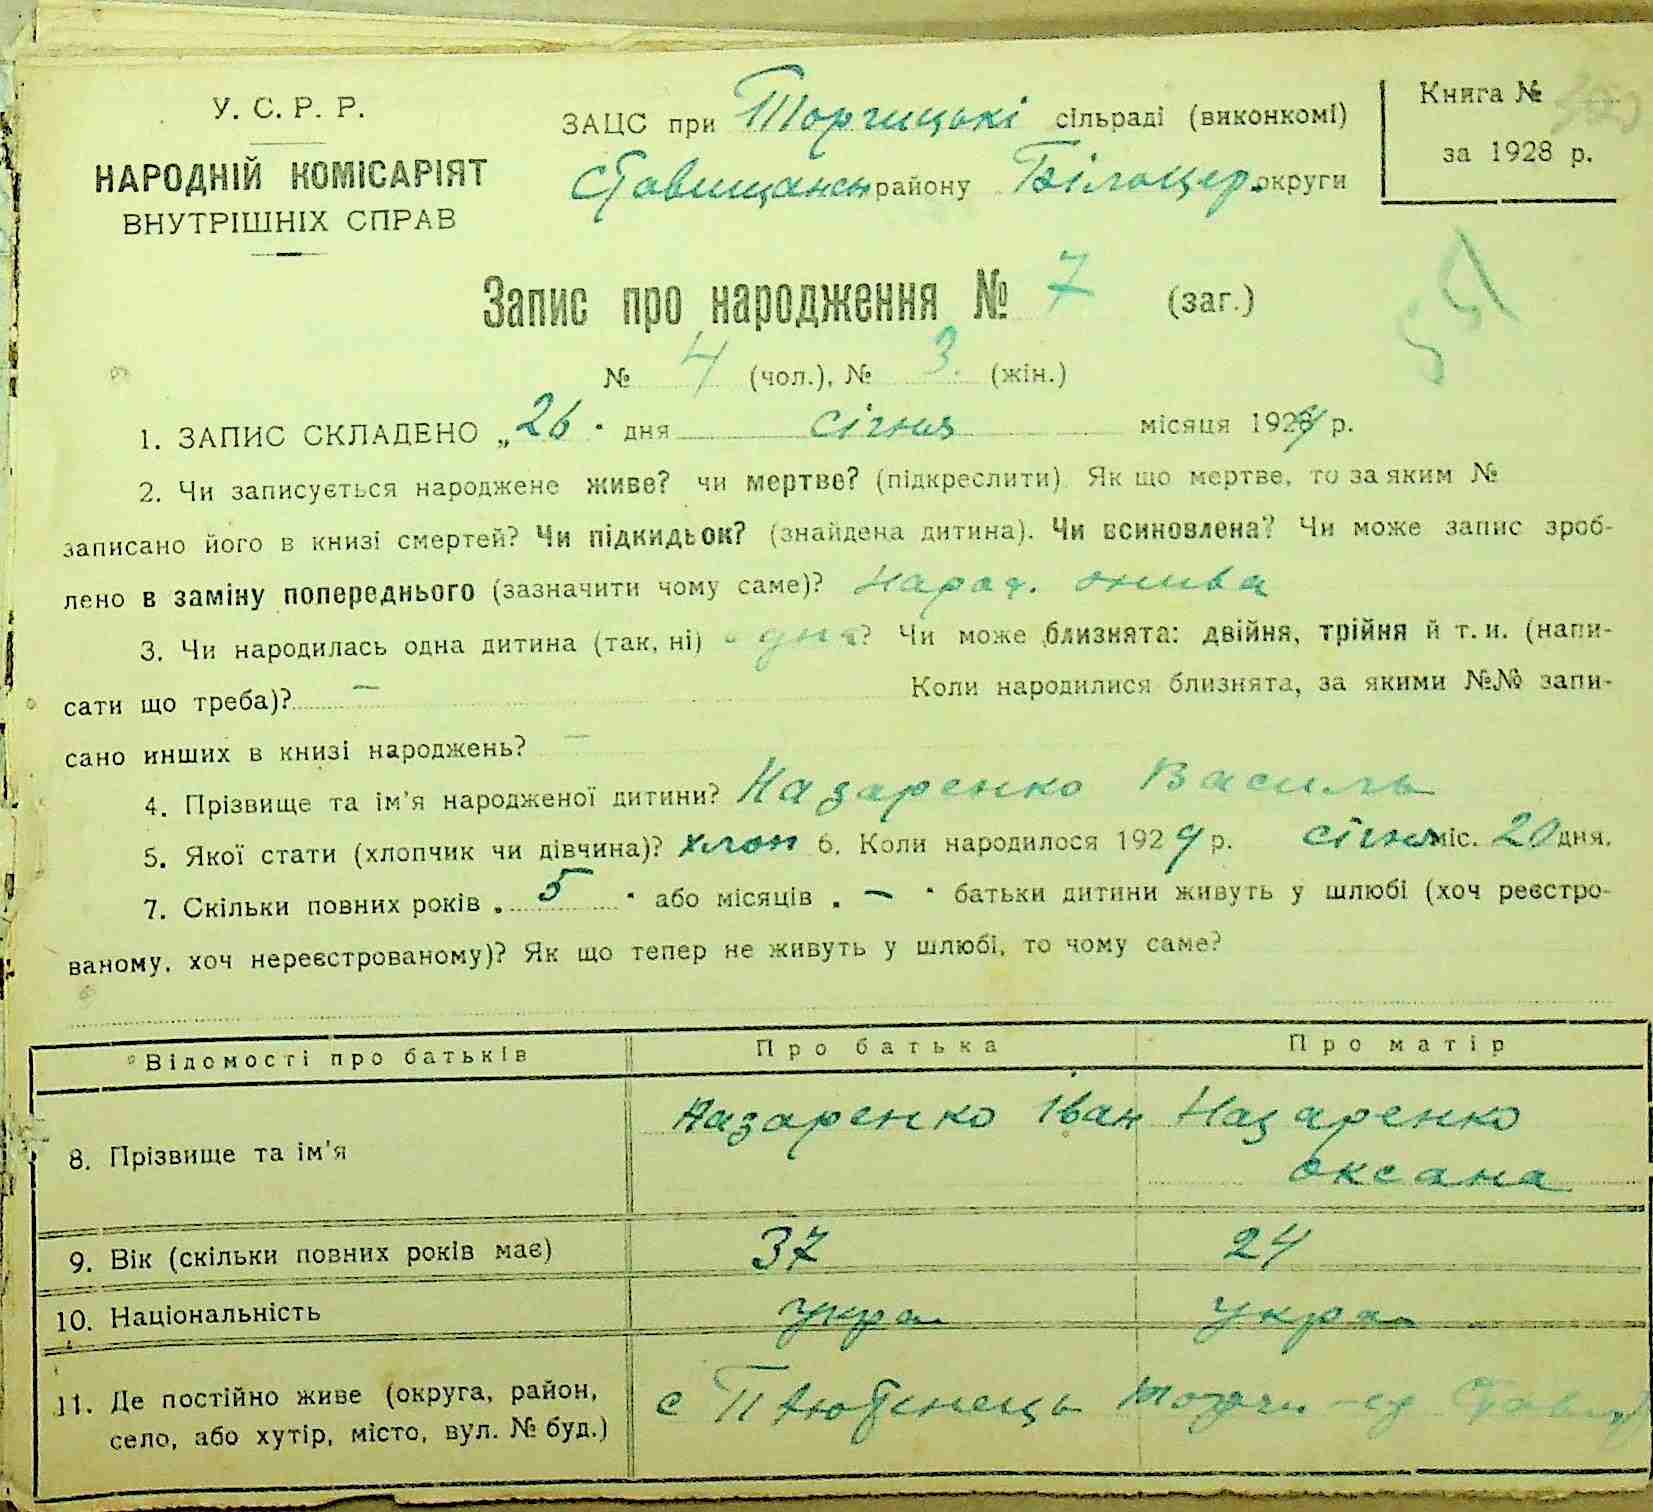 У. С. Р. Р.
НАРОДНІЙ КОМІСАРІЯТ
ВНУТРІШНІХ СПРАВ
ЗАЦС при Торчицькі сільраді (виконкомі)
Ставищанськ району Білоцер. округи
Книга №
за 1928 р.
Запис про народження № 7 (заг.)
№ 4 (чол.), № 3. (жін.)
1. ЗАПИС СКЛАДЕНО „26" дня січня місяця 1929 р.
2. Чи записується народжене живе? чи мертве? (підкреслити). Як що мертве, то за яким №
записано його в книзі смертей? Чи підкидьок? (знайдена дитина). Чи всиновлена? Чи може запис зроб-
лено в заміну попереднього (зазначити чому саме)? народ. жива
3. Чи народилась одна дитина (так, ні) одна? Чи може близнята: двійня, трійня й т. и. (напи-
сати що треба)? — Коли народилися близнята, за якими №№ запи-
сано инших в книзі народжень? —
4. Прізвище та ім'я народженої дитини? Назаренко Василь
5. Якої стати (хлопчик чи дівчина)? хлоп 6. Коли народилося 1929 р. січня міс. 20 дня.
7. Скільки повних років „5" або місяців „—" батьки дитини живуть у шлюбі (хоч реєстро-
ваному, хоч нереєстрованому)? Як що тепер не живуть у шлюбі, то чому саме?
Відомості про батьків Про батька Про матір
8. Прізвище та ім'я Назаренко Іван Назаренко
оксана
9. Вік (скільки повних років має) 37 24
10. Національність укра укра
11. Де постійно живе (округа, район,
село, або хутір, місто, вул. № буд.) с